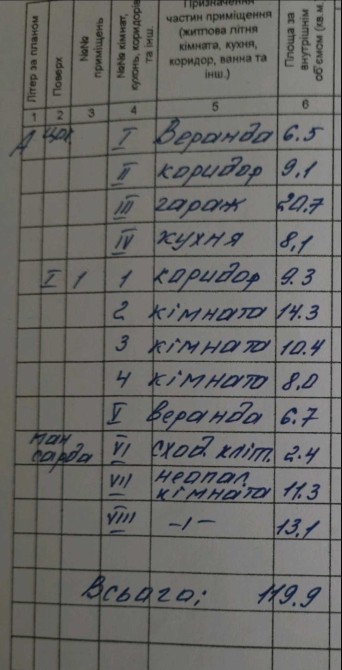 Літер за планом Поверх №№ приміщень №№ кімнат, кухонь, коридорів та інш. Призначення частин приміщення (житлова літня кімната, кухня, коридор, ванна та інш.) Площа за внутрішнім об'ємом (кв.м.)
1 2 3 4 5 6
А цок. I Веранда 6.5
II коридор 9,1
III гараж 20,7
IV кухня 8,1
I 1 1 коридор 9.3
2 кімната 14.3
3 кімната 10.4
4 кімната 8,0
V веранда 6.7
ман сарда VI сход. кліт. 2.4
VII неопал. кімната 11.3
VIII -//- 13,1
Всього: 119.9